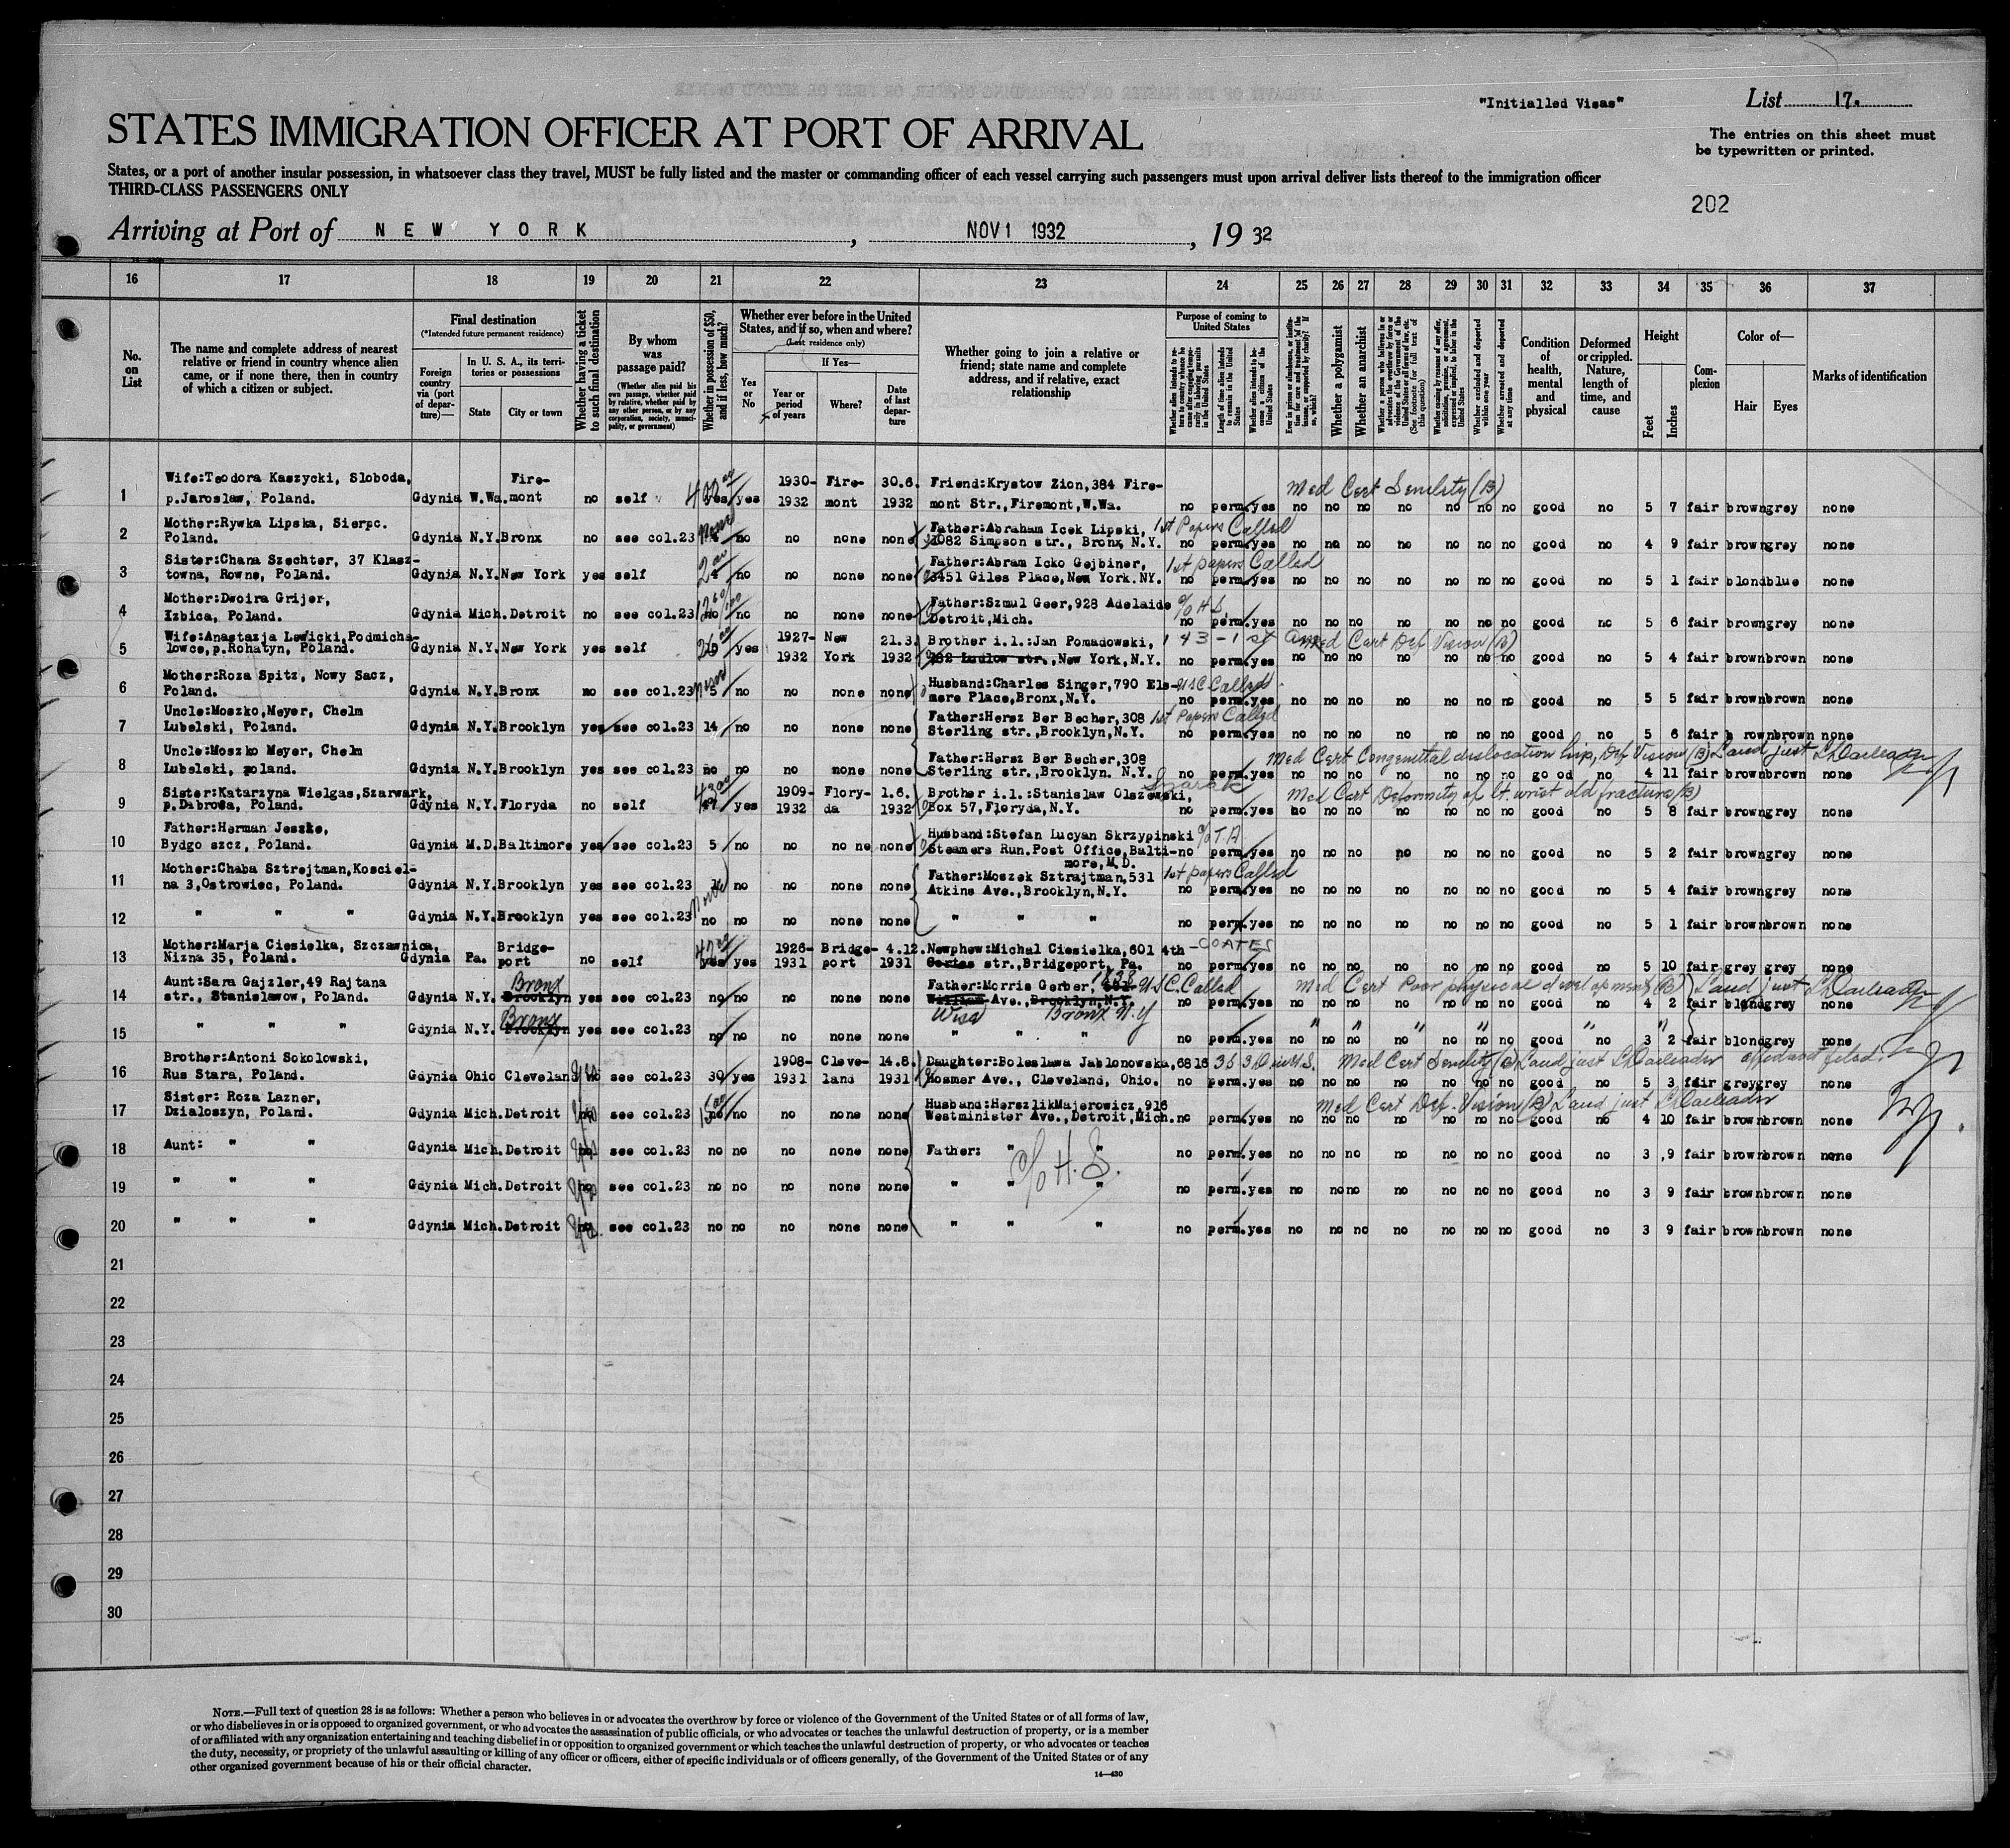 "Initialled Visas"
List 17.
STATES IMMIGRATION OFFICER AT PORT OF ARRIVAL
The entries on this sheet must
be typewritten or printed.
States, or a port of another insular possession, in whatsoever class they travel, MUST be fully listed and the master or commanding officer of each vessel carrying such passengers must upon arrival deliver lists thereof to the immigration officer
THIRD-CLASS PASSENGERS ONLY
202
Arriving at Port of NEW YORK, NOV 1 1932, 19 32
16 17 18 19 20 21 22 23 24 25 26 27 28 29 30 31 32 33 34 35 36 37
No. on List
The name and complete address of nearest relative or friend in country whence alien came, or if none there, then in country of which a citizen or subject.
Final destination
(*Intended future permanent residence)
Foreign country via (port of departure)—
In U. S. A., its territories or possessions
State
City or town
Whether having a ticket to such final destination
By whom was passage paid?
(Whether alien paid his own passage, whether paid by relative, whether paid by any other person, or by any corporation, society, municipality, or government)
Whether in possession of $50, and if less, how much?
Whether ever before in the United States, and if so, when and where?
(Last residence only)
Yes or No
If Yes—
Year or period of years
Where?
Date of last departure
Whether going to join a relative or friend; state name and complete address, and if relative, exact relationship
Purpose of coming to United States
Length of time alien intends to remain in the United States
Whether alien intends to become a citizen of the United States
Whether a polygamist
Whether an anarchist
Whether excluded and deported within one year
Whether arrested and deported at any time
Condition of health, mental and physical
Deformed or crippled. Nature, length of time, and cause
Height
Feet
Inches
Complexion
Color of—
Hair
Eyes
Marks of identification
1 Wife:Teodora Kaszycki, Sloboda, p.Jaroslaw, Poland. Gdynia W.Wa. Firemont no self 400 yes yes 1930-1932 Firemont 30.6.1932 Friend:Krystow Zion,384 Firemont Str.,Firemont,W.Wa. no perm. yes no no no no no no no good no 5 7 fair brown grey none
Med Cert Senility (B)
2 Mother:Rywka Lipska, Sierpc. Poland. Gdynia N.Y. Bronx no see col.23 none no no none none Father:Abraham Icek Lipski, 1082 Simpson str., Bronx, N.Y. no perm. yes no no no no no no no good no 4 9 fair brown grey none
1st Papers Called
3 Sister:Chana Szechter, 37 Klasztowna, Rowne, Poland. Gdynia N.Y. New York yes self no no none none Father:Abram Icko Gejbiner, 3451 Giles Place,New York.NY. no perm. yes no no no no no no no good no 5 1 fair blond blue none
1st papers Called
4 Mother:Dwoira Grijer, Izbica, Poland. Gdynia Mich. Detroit no see col.23 no no no none none Father:Szmul Geer,928 Adelaide Detroit,Mich. no perm. yes no no no no no no no good no 5 6 fair brown grey none
c/o H.S.
5 Wife:Anastazja Lewicki,Podmichalowce, p.Rohatyn, Poland. Gdynia N.Y. New York yes self yes 1927-1932 New York 21.3.1932 Brother i.l.:Jan Pomadowski, Ludlow str.,New York,N.Y. no perm. yes no no no no no no no good no 5 4 fair brown brown none
143-1st Med Cert Def Vision (B)
6 Mother:Roza Spitz, Nowy Sacz, Poland. Gdynia N.Y. Bronx no see col.23 5 no no none none Husband:Charles Singer,790 Elsmere Place,Bronx,N.Y. no perm. yes no no no no no no no good no 5 5 fair brown brown none
USC Called
7 Uncle:Moszko,Meyer, Chelm Lubelski, Poland. Gdynia N.Y. Brooklyn yes see col.23 14 no no none none Father:Hersz Ber Becher,308 Sterling str.,Brooklyn,N.Y. no perm. yes no no no no no no no good no 5 6 fair b rown brown none
1st Papers Called
8 Uncle:Moszko Meyer, Chelm Lubelski, poland. Gdynia N.Y. Brooklyn yes see col.23 no no no none none Father:Hersz Ber Becher,308 Sterling str.,Brooklyn. N.Y. no perm. yes no no no no no no no go od no 4 11 fair brown brown none
Med Cert Congenital dislocation hip, Def Vision (B)
9 Sister:Katarzyna Wielgas,Szarwark, p.Dabrowa, Poland. Gdynia N.Y. Floryda no self yes 1909-1932 Floryda 1.6.1932 Brother i.l.:Stanislaw Olszewski, Box 57,Floryda,N.Y. no perm. yes no no no no no no no good no 5 8 fair brown grey none
Med Cert Deformity of lt. wrist old fracture (B)
10 Father:Herman Jeszke, Bydgo szcz, Poland. Gdynia M.D. Baltimore yes see col.23 5 no no no ne none Husband:Stefan Lucyan Skrzypinski Steamers Run.Post Office,Baltimore,M.D. no perm. yes no no no no no no no good no 5 2 fair brown grey none
c/o T.A.
11 Mother:Chaba Sztrejtman,Koscielna 3,Ostrowiec, Poland. Gdynia N.Y. Brooklyn yes see col.23 no no none none Father:Moszek Sztrajtman,531 Atkins Ave.,Brooklyn,N.Y. no perm. yes no no no no no no no good no 5 4 fair brown grey none
1st papers Called
12 " " " Gdynia N.Y. Brooklyn yes see col.23 no no no none none " " " no perm. yes no no no no no no no good no 5 1 fair brown brown none
13 Mother:Marja Ciesielka, Szczawnica, Nizna 35, Poland. Gdynia Pa. Bridgeport no self yes yes 1926-1931 Bridgeport 4.12.1931 Newphew:Michal Ciesielka,601 4th Coates str.,Bridgeport, Pa. no perm. yes no no no no no no no good no 5 10 fair grey grey none
14 Aunt:Sara Gajzler,49 Rajtana str., Stanislawow, Poland. Gdynia N.Y. Bronx Brooklyn yes see col.23 no no no none none Father:Morris Gerber, William Ave.,Brooklyn,N.Y. no perm. yes 4 2 fair blond grey none
U S C. Called Bronx N.Y Med Cert Poor physical development (B)
15 " " " Gdynia N.Y. Bronx Brooklyn yes see col.23 no no no none none " " " no perm. yes no no no no no no no good no 3 2 fair blond grey none
16 Brother:Antoni Sokolowski, Rus Stara, Poland. Gdynia Ohio Cleveland see col.23 30 yes 1908-1931 Cleveland 14.8.1931 Daughter:Boleslawa Jablonowska,6816 Hosmer Ave., Cleveland, Ohio. no perm. yes no no no no no no no good no 5 3 fair grey grey none
Med Cert Senility (B) affidavit filed.
17 Sister: Roza Lazner, Dzialoszyn, Poland. Gdynia Mich. Detroit no see col.23 no no no none none Husband:HerszlikMajerowicz,916 Westminister Ave.,Detroit,Mich. no perm. yes no no no no no no no good no 4 10 fair brown brown none
Med Cert Def. Vision (B)
18 Aunt: " " Gdynia Mich. Detroit no see col.23 no no no none none Father: " " no perm. yes no no no no no no no good no 3 9 fair brown brown none
c/o H.S.
19 " " " Gdynia Mich. Detroit no see col.23 no no no none none " " " no perm. yes no no no no no no no good no 3 9 fair brown brown none
20 " " " Gdynia Mich. Detroit no see col.23 no no no none none " " " no perm. yes no no no no no no no good no 3 9 fair brown brown none
21
22
23
24
25
26
27
28
29
30
NOTE.—Full text of question 28 is as follows: Whether a person who believes in or advocates the overthrow by force or violence of the Government of the United States or of all forms of law,
or who disbelieves in or is opposed to organized government, or who advocates the assassination of public officials, or who advocates or teaches the unlawful destruction of property, or is a member
of or affiliated with any organization entertaining and teaching disbelief in or opposition to organized government or which teaches the unlawful destruction of property, or who advocates or teaches
the duty, necessity, or propriety of the unlawful assaulting or killing of any officer or officers, either of specific individuals or of officers generally, of the Government of the United States or of any
other organized government because of his or their official character.
14—430